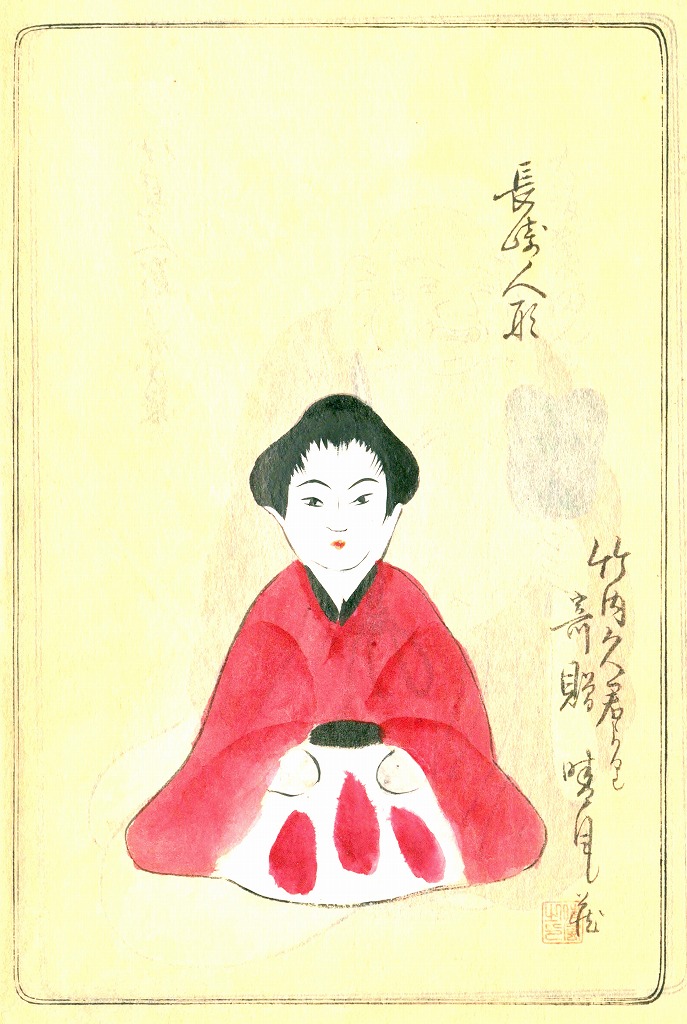 長崎人形
竹内久君より
寄贈 晴風蔵